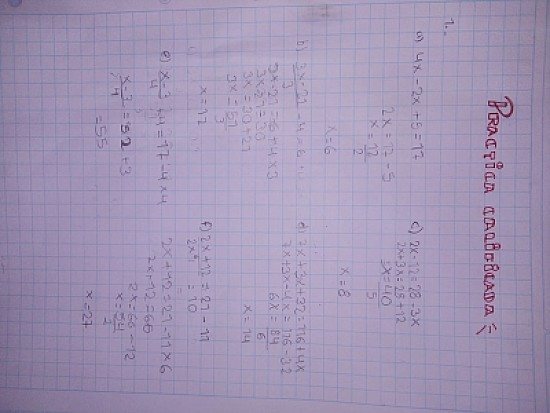 PRACTICA CALIFICADA =
1.-
a) 4x - 2x + 5 = 17
2x = 17 - 5
x = 12
2
x = 6
b) 3x - 27
3
3x - 27 = 6 + 4 x 3
3x - 27 = 30
3x = 30 + 27
3x = 57
3
x = 17
e) x - 3
4
+ 4 = 17 - 4 x 4
x - 3
4
= 52 + 3
= 55
c) 2x - 12 = 28 - 3x
2x + 3x = 28 + 12
5x = 40
5
x = 8
d) 7x + 3x + 32 = 116 + 4x
7x + 3x - 4x = 116 - 32
6x = 84
6
x = 14
f) 2x + 12
= 21 - 11
= 10
2x + 12 = 21 - 11 x 6
2x + 12 = 66
2x = 66 - 12
x = 54
2
x = 27